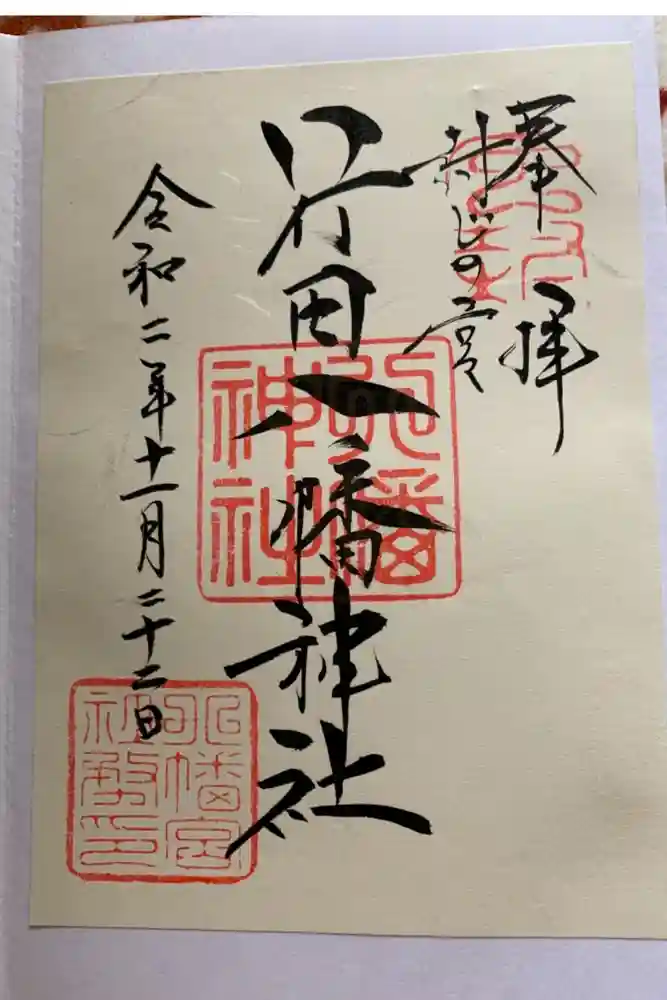 奉拝
封じの宮
行田八幡神社
八幡神社
令和二年十一月二十二日
八幡宮
社務印